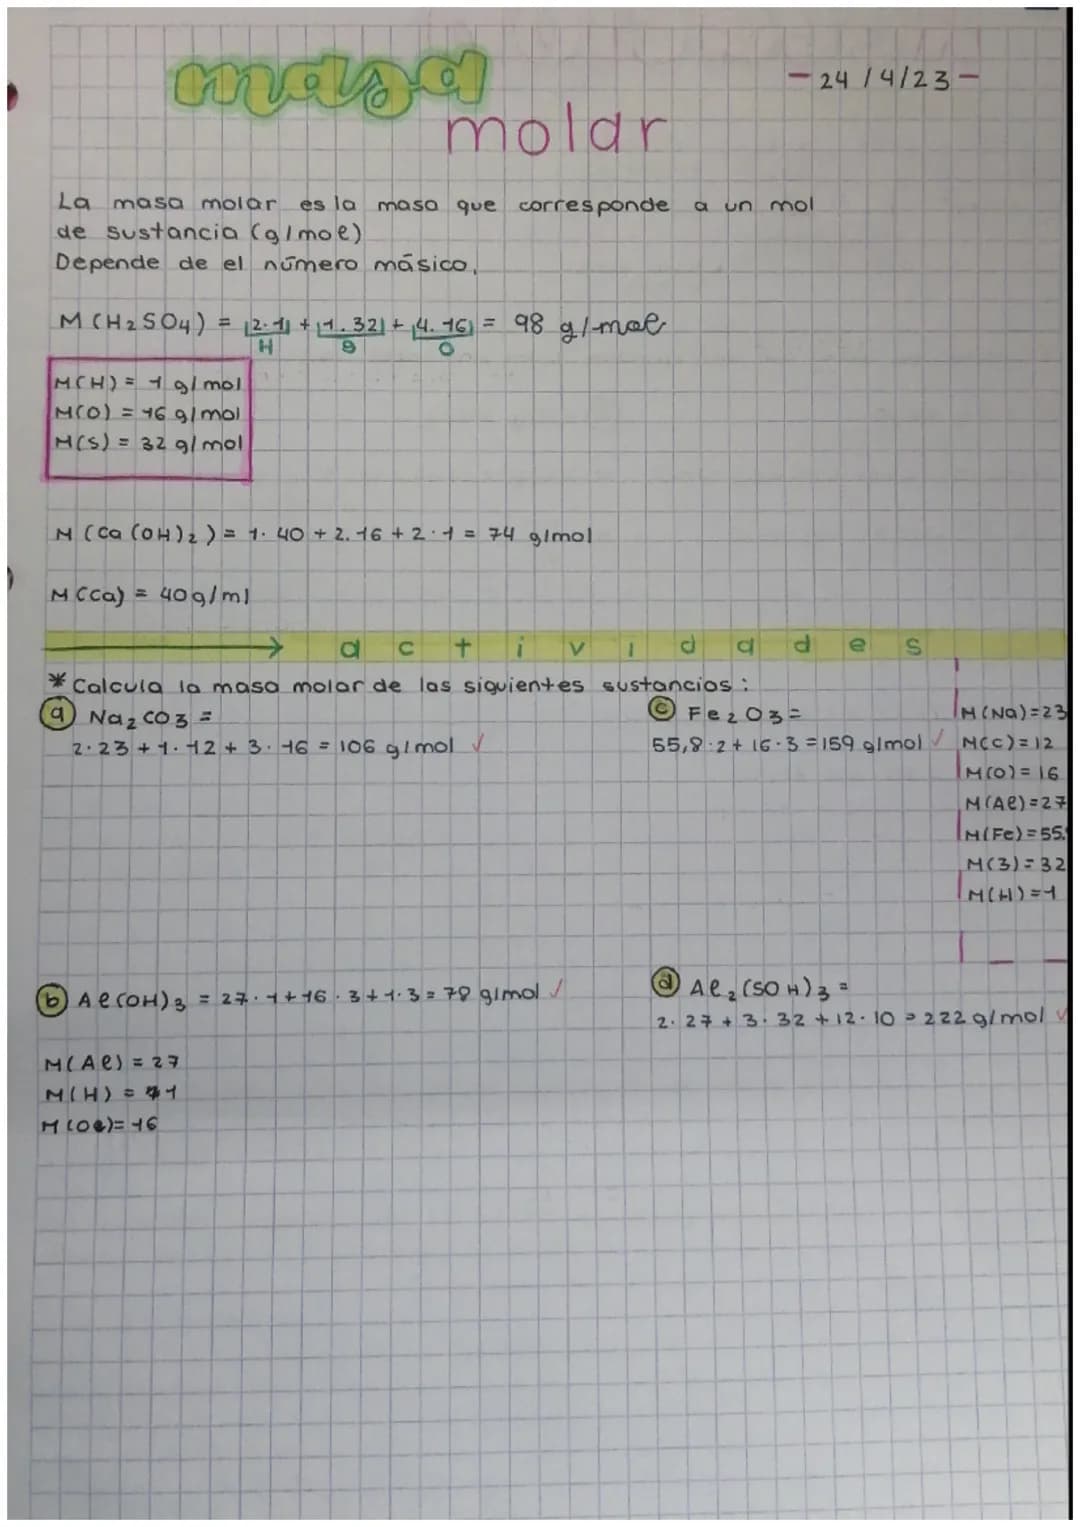 masa
- 24/4/23 -
molar
La masa molar es la masa que corresponde a un mol
de sustancia (g/mol)
Depende de el número másico.
M(H2SO4) = 2·1 + 1·32 + 4·16 = 98 g/mol
H S O
M(H) = 1 g/mol
M(O) = 16 g/mol
M(S) = 32 g/mol
M(Ca(OH)2) = 1·40 + 2·16 + 2·1 = 74 g/mol
M(Ca) = 40g/ml
→ actividades
* Calcula la masa molar de las siguientes sustancias:
a Na2CO3 =
2·23 + 1·12 + 3·16 = 106 g/mol ✓
c Fe2O3 =
55,8·2 + 16·3 = 159 g/mol ✓
M(Na)=23
M(C)=12
M(O)=16
M(Al)=27
M(Fe)=55,
M(S)=32
M(H)=1
b Al(OH)3 = 27·1 + 16·3 + 1·3 = 78 g/mol ✓
M(Al) = 27
M(H) = 1
M(O) = 16
d Al2(SO4)3 =
2·27 + 3·32 + 12·10 = 222 g/mol ✓